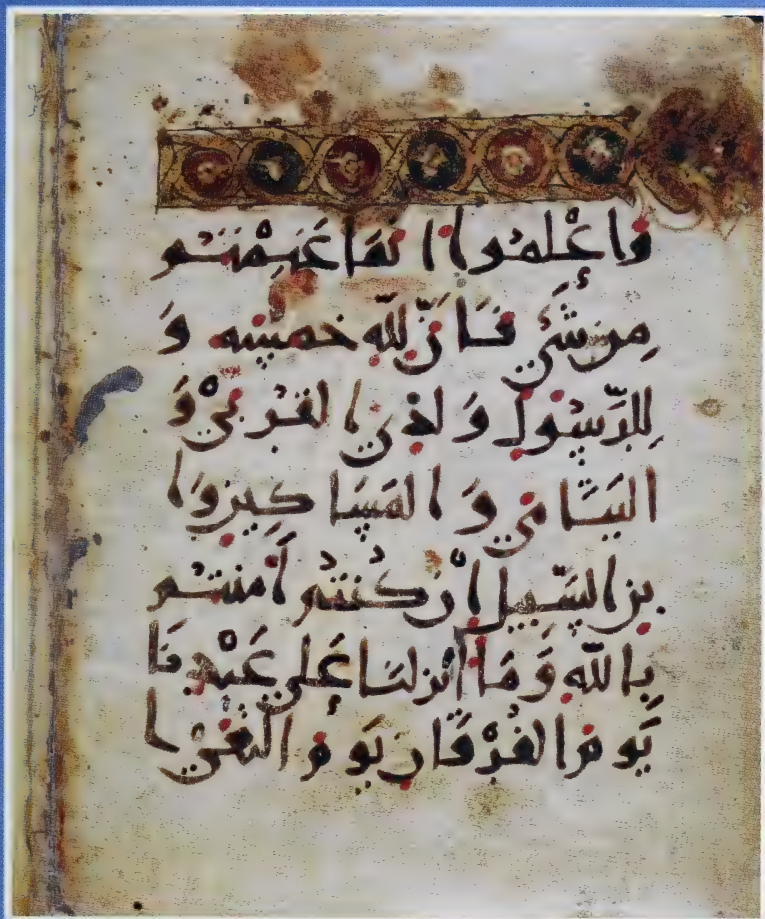 واعلموا انما غنمتم
من شي فان لله خمسه و
للرسول ولذي القربى و
اليتامى والمساكين وا
بن السبيل ان كنتم امنتم
بالله وما انزلنا على عبدنا
يوم الفرقان يوم التقى ا